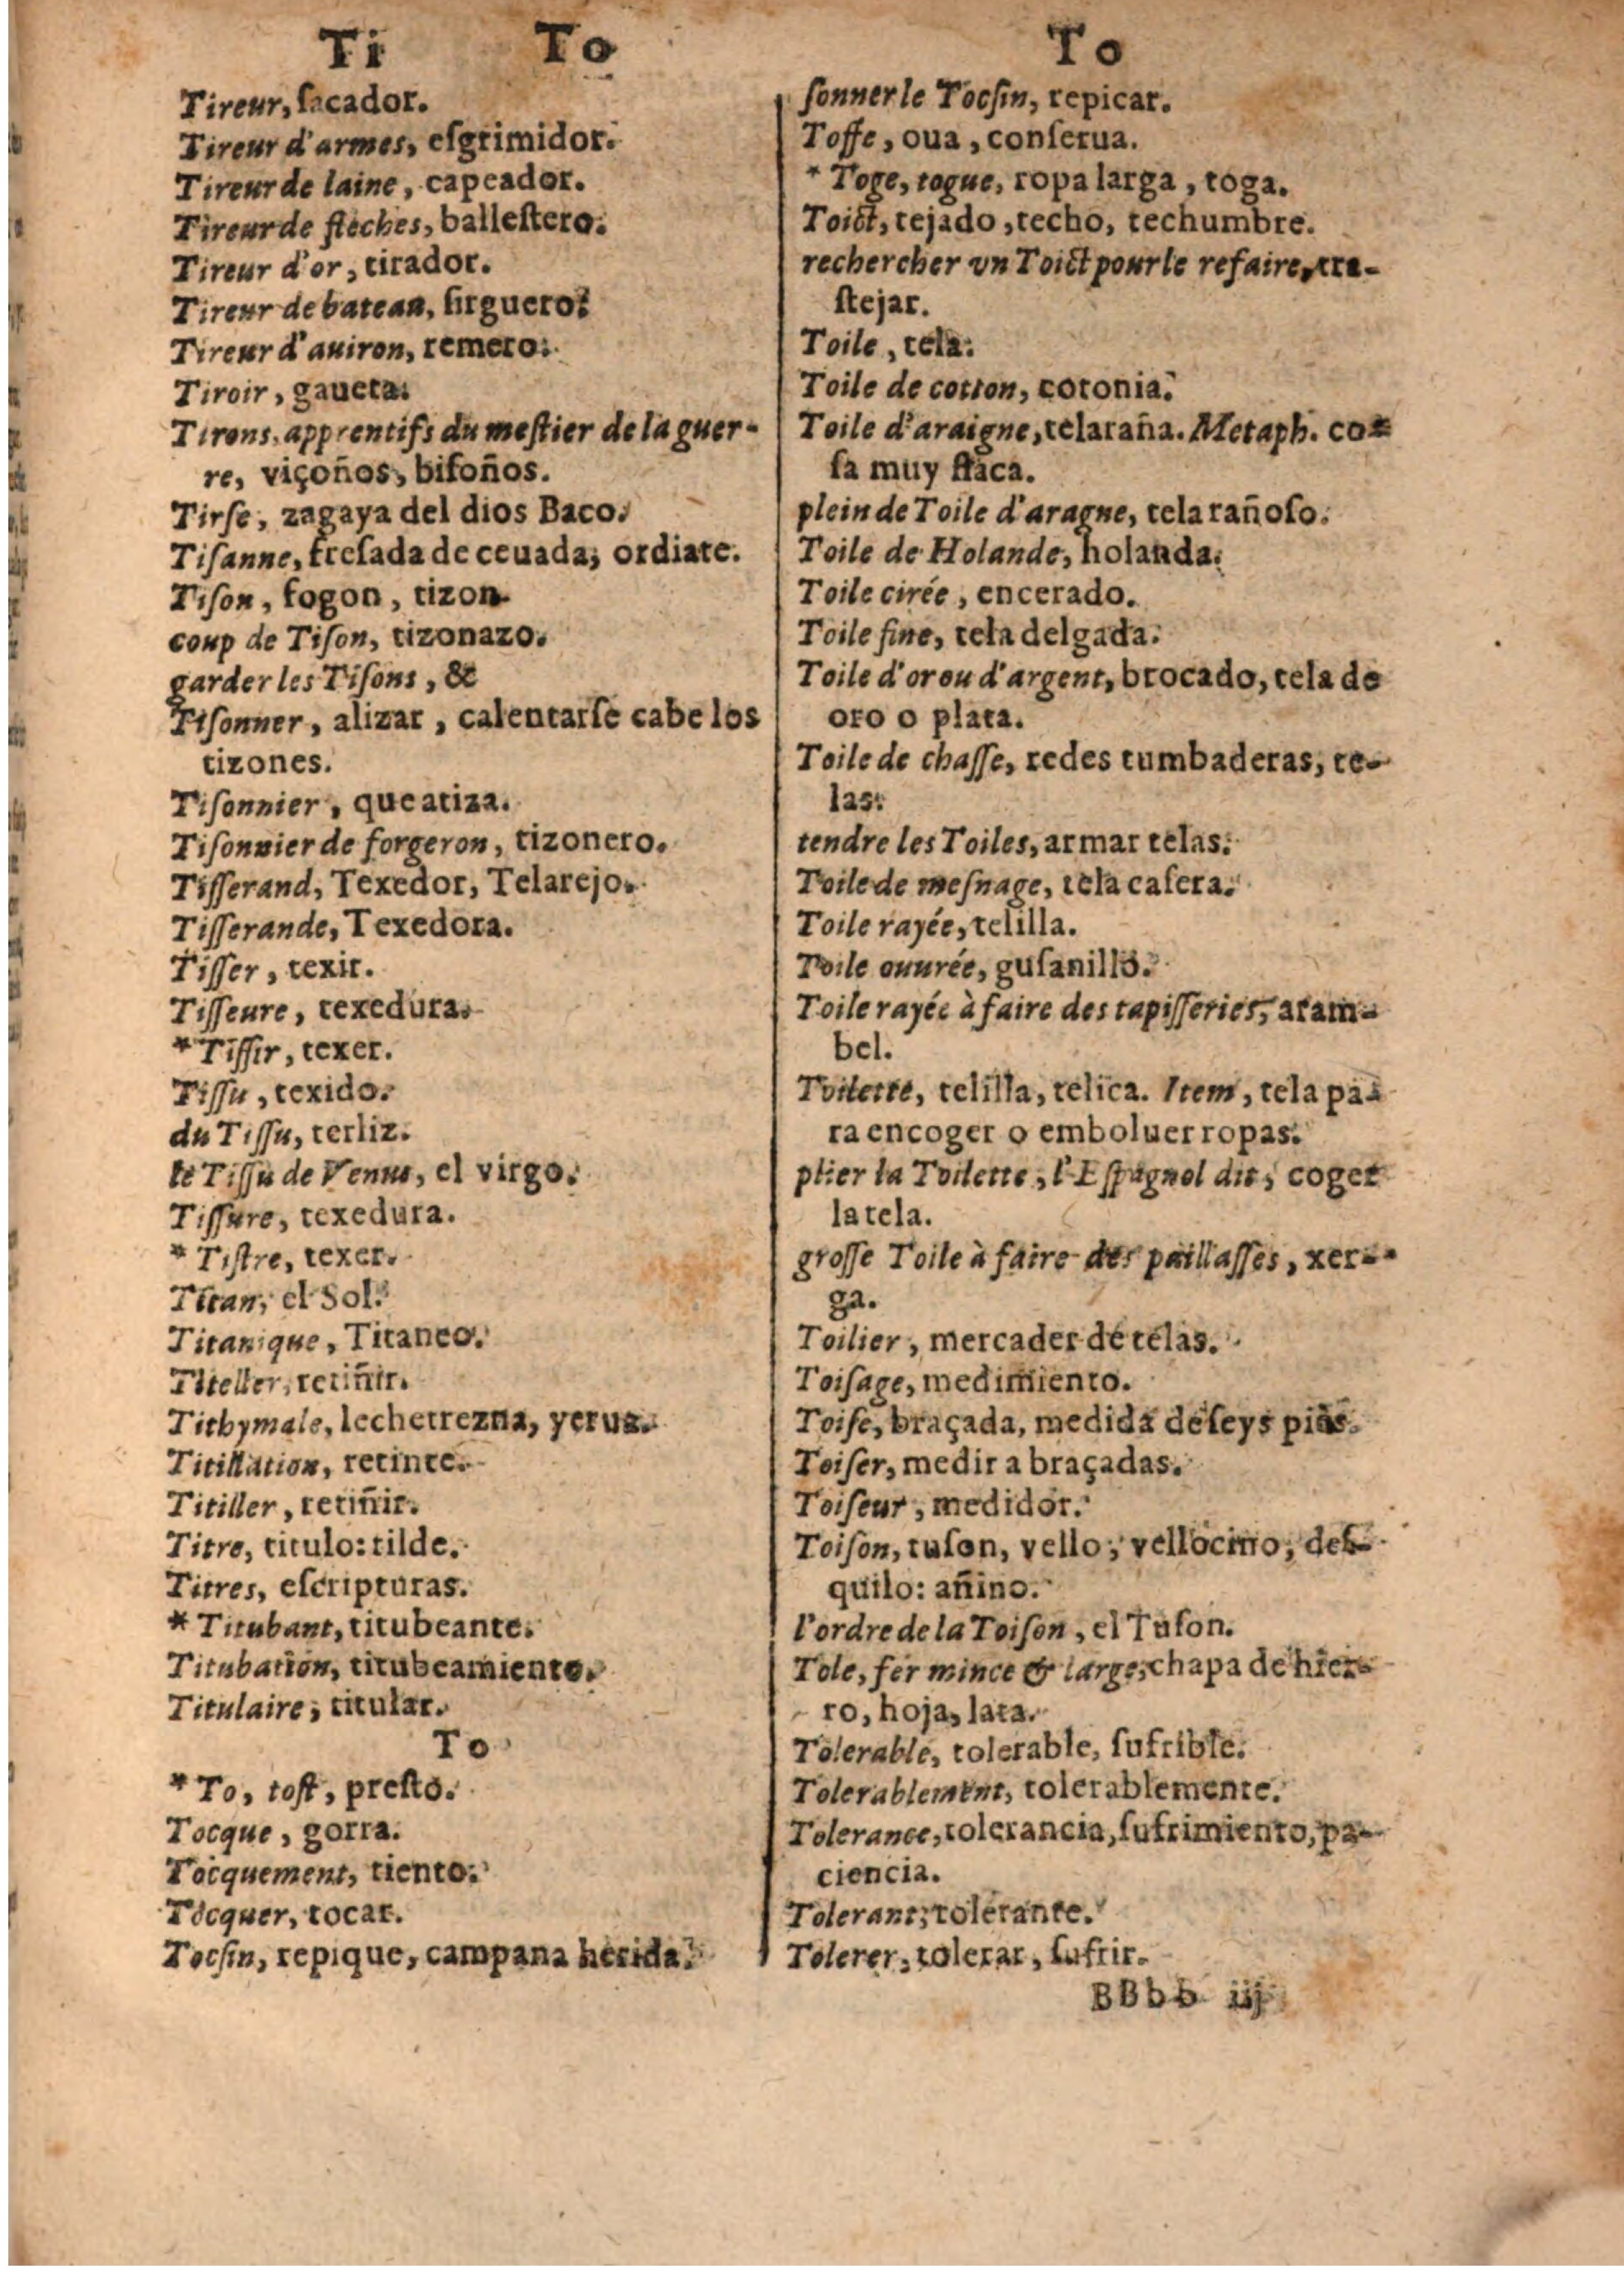 Ti To
Tireur, ſacador.
Tireur d'armes, eſgrimidor.
Tireur de laine, capeador.
Tireur de fleches, balleſtero.
Tireur d'or, tirador.
Tireur de bateau, ſirguero.
Tireur d'auiron, remero.
Tiroir, gaueta.
Tirons, apprentifs du meſtier de la guer-
re, viçoños, biſoños.
Tirſe, zagaya del dios Baco.
Tiſanne, freſada de ceuada, ordiate.
Tiſon, fogon, tizon.
coup de Tiſon, tizonazo.
garder les Tiſons, &
Tiſonner, alizar, calentarſe cabe los
tizones.
Tiſonnier, que atiza.
Tiſonnier de forgeron, tizonero.
Tiſſerand, Texedor, Telarejo.
Tiſſerande, Texedora.
Tiſſer, texir.
Tiſſeure, texedura.
* Tiſſir, texer.
Tiſſu, texido.
du Tiſſu, terliz.
le Tiſſu de Venus, el virgo.
Tiſſure, texedura.
* Tiſtre, texer.
Titan, el Sol.
Titanique, Titaneo.
Titeller, retiñir.
Tithymale, lechetrezna, yerua.
Titillation, retinte.
Titiller, retiñir.
Titre, titulo: tilde.
Titres, eſcripturas.
* Titubant, titubeante.
Titubation, titubeamiento.
Titulaire, titular.
To
* To, toſt, preſto.
Tocque, gorra.
Tocquement, tiento.
Tocquer, tocar.
Tocſin, repique, campana herida.
To
ſonner le Tocſin, repicar.
Toffe, oua, conſerua.
* Toge, togue, ropa larga, toga.
Toict, tejado, techo, techumbre.
rechercher vn Toict pour le refaire, tra-
ſtejar.
Toile, tela.
Toile de cotton, cotonia.
Toile d'araigne, telaraña. Metaph. co-
ſa muy flaca.
plein de Toile d'aragne, tela rañoſo.
Toile de Holande, holanda.
Toile cirée, encerado.
Toile fine, tela delgada.
Toile d'or ou d'argent, brocado, tela de
oro o plata.
Toile de chaſſe, redes tumbaderas, te-
las.
tendre les Toiles, armar telas.
Toile de meſnage, tela caſera.
Toile rayée, telilla.
Toile ouurée, guſanillo.
Toile rayée à faire des tapiſſeries, aram-
bel.
Toilette, telilla, telica. Item, tela pa-
ra encoger o emboluer ropas.
plier la Toilette, l'Eſpagnol dit, coger
la tela.
groſſe Toile à faire des paillaſſes, xer-
ga.
Toilier, mercader de telas.
Toiſage, medimiento.
Toiſe, braçada, medida de ſeys piés.
Toiſer, medir a braçadas.
Toiſeur, medidor.
Toiſon, tuſon, vello, vellocino, deſ-
quilo: añino.
l'ordre de la Toiſon, el Tuſon.
Tole, fer mince & large, chapa de hier-
ro, hoja, lata.
Tolerable, tolerable, ſufrible.
Tolerablement, tolerablemente.
Tolerance, tolerancia, ſufrimiento, pa-
ciencia.
Tolerant, tolerante.
Tolerer, tolerar, ſufrir.
BBbb iij